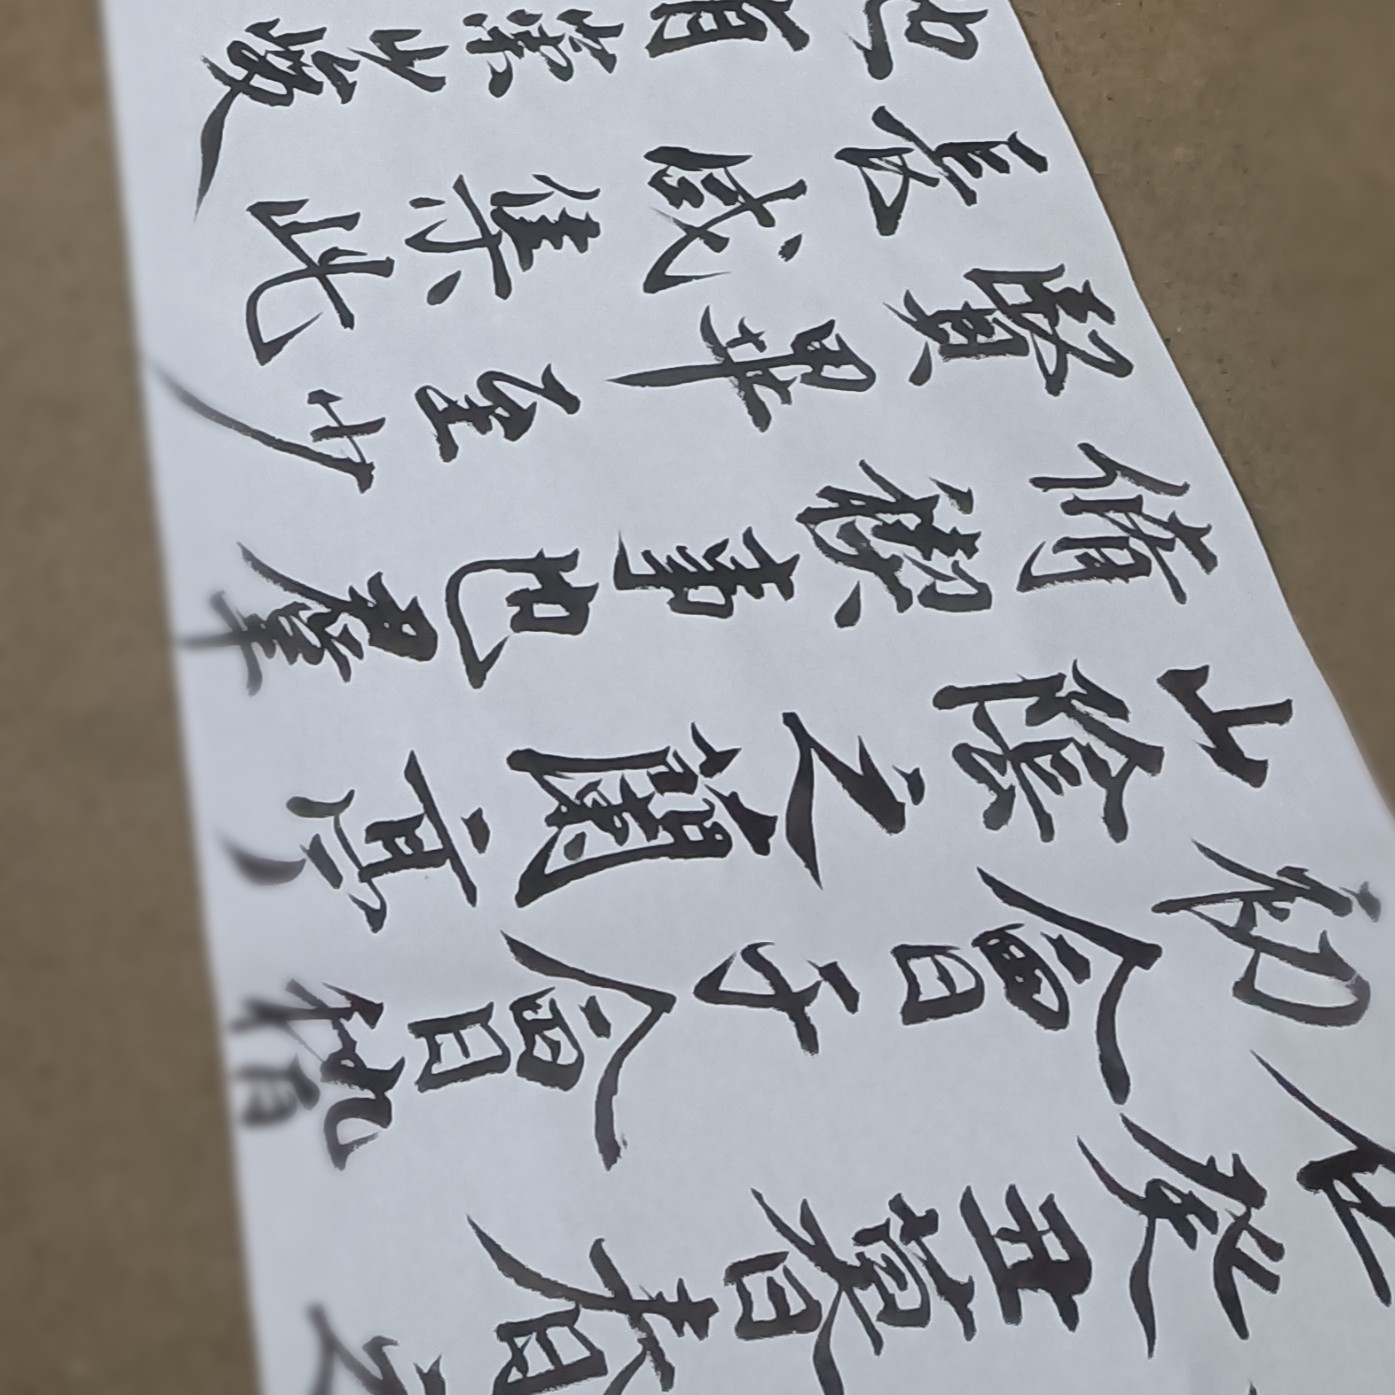 在癸丑暮春之
初會于會稽
山陰之蘭亭
脩禊事也羣
賢畢至少
長咸集此
地有崇山峻